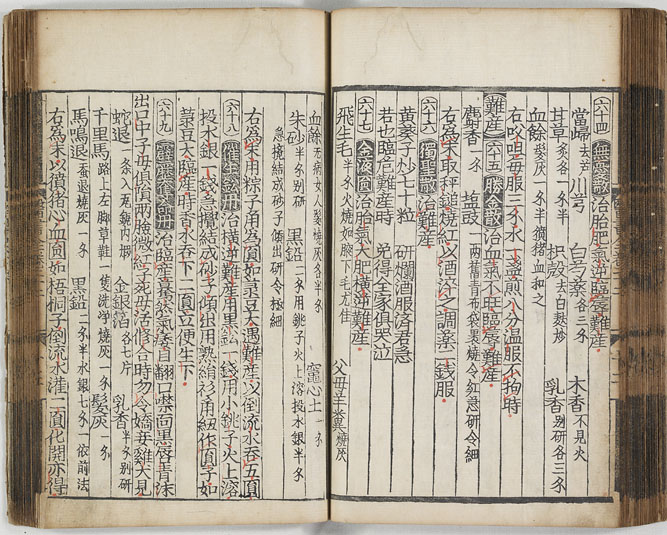 六十四 無憂散 治胎肥氣逆臨蓐難產
當歸去芦 川芎 白芍藥各三分 木香不見火
甘草炙各一分半 枳殼去白麩炒 乳香别研各三分
血餘髮灰一分半猪血和之
右㕮咀每服三分水一盞煎八分温服不拘時
難產 六十五 勝金散 治血氣不旺臨蓐難產
麝香一分 塩豉一兩舊青布袋裹燒令紅急研令細
右為末取秤鎚燒紅以酒淬之調藥二錢服
六十六 獨聖散 治難產
黄葵子炒七十粒 研爛酒服濟君急
若也臨危難產時 免得全家俱哭泣
六十七 金液圓 治胎氣大肥橫逆難產
飛生毛半分火燒如腋下毛尤佳 父母羊糞燒灰
血餘無病女人髮燒灰各半分 竈心土一分
朱砂半分别研 黑鉛二分用銚子火上溶投水銀半分
急攪結成砂子傾出研令極細
右為末用粽子角為圓如菉豆大遇難產以倒流水吞五圓
六十八 治橫逆難產用黑鉛一錢用小銚子火上溶
投水銀一錢急攪結成砂子傾出用熟絹衫角紐作圓子如
菉豆大臨產時香水吞下二圓立便生下
六十九 治臨產驀然氣痿目翻口噤面黑唇青沫
出口中子母俱損兩臉微紅子死母活修合時勿令嬌妻雞犬見
蛇退一条入瓦罐内煅 金銀箔各七片 乳香半分别研
千里馬路上左脚草鞋一隻洗净燒灰一分 髮灰一分
馬鳴退蚕退燒灰一分 黑鉛一分半水銀七分一依前法
右為末以猪心血圓如梧桐子倒流水灌一圓化開亦得